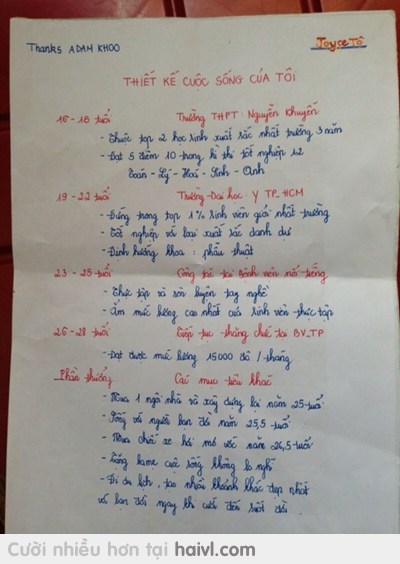 Thanks ADAM KHOO
Joyce Tô
THIẾT KẾ CUỘC SỐNG CỦA TÔI
16-18 tuổi Trường THPT: Nguyễn Khuyến
- Thuộc top 2 học sinh xuất sắc nhất trường 3 năm
- Đạt 5 điểm 10 trong kì thi tốt nghiệp 12
Toán - Lý - Hoá - Sinh - Anh
19-22 tuổi Trường Đại học Y TP_HCM
- Đứng trong top 1% sinh viên giỏi nhất trường
- Tốt nghiệp với loại xuất sắc danh dự
- Định hướng khoa: phẫu thuật
23-25 tuổi Công tác tại Bệnh viện nổi tiếng
- Thực tập và rèn luyện tay nghề
- Ẵm mức lương cao nhất của sinh viên thực tập
26-28 tuổi Tiếp tục thăng chức tại BV_TP
- Đạt được mức lương 15000 đô / tháng
Phần thưởng Các mục tiêu khác
- Mua 1 ngôi nhà và xây dựng lại năm 25 tuổi
- Sống với người bạn đời năm 25,5 tuổi
- Mua chiếc xe hơi mơ ước năm 26,5 tuổi
- cuộc sống không lo nghĩ
- Đi du lịch, tạo nhiều khoảnh khắc đẹp nhất
với bạn đời ngay khi cưới đến suốt đời
Cười nhiều hơn tại haivl.com